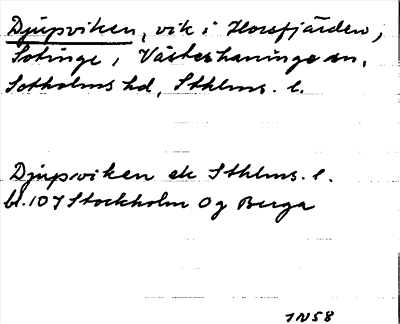 Djupviken, vik i Horsfjärden,
Sotinge, Västerhaninge sn,
Sotholms hd, Sthlms. l.
Djupviken ek Sthlms. l.
bl. 107 Stockholm Og Berga
IN58